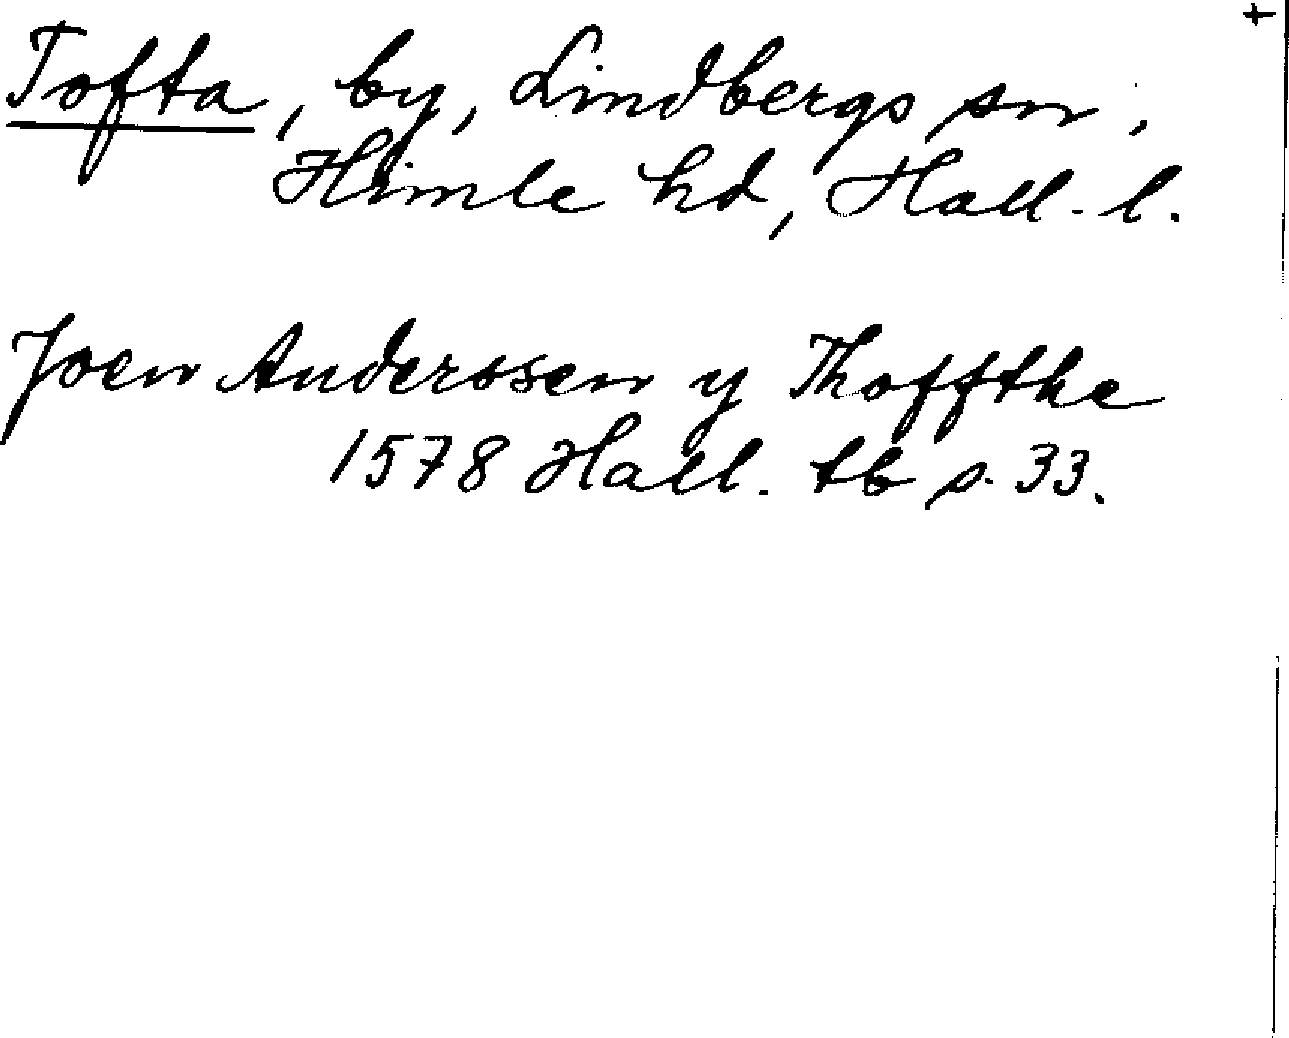 Tofta, by, Lindbergs sn,
Himle hd, Hall. l.
Joen Anderssen y Thoffthe
1578 Hall. tb s. 33.